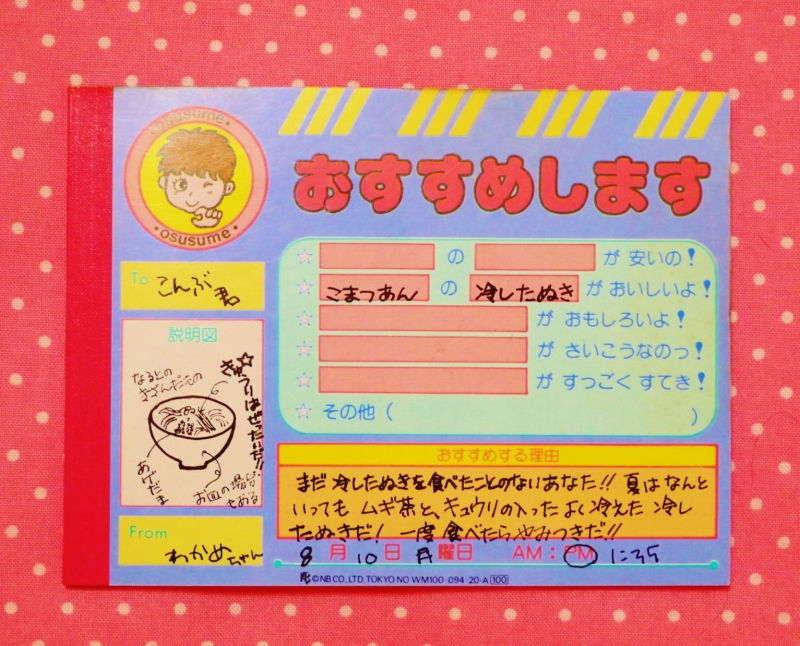 •osusume•
•osusume•
おすすめします
To こんぶ君
☆ の が 安いの!
☆ こまつあん の 冷したぬき が おいしいよ!
☆ が おもしろいよ!
☆ が さいこうなのっ!
☆ が すっごく すてき!
☆ その他( )
説明図
☆きゅうりはぜったいだ!!
なるとの
きざんだもの
あげだま
お皿の場合
もある
From わかめちゃん
おすすめする理由
まだ 冷したぬきを食べたことのないあなた!! 夏は なんと
いっても ムギ茶と、キュウリの入った よく冷えた 冷し
たぬきだ! 一度 食べたらやみつきだ!!
8月10日 月曜日 AM:PM 1:35
©NB CO., LTD TOKYO NO WM100-094-20-A 100